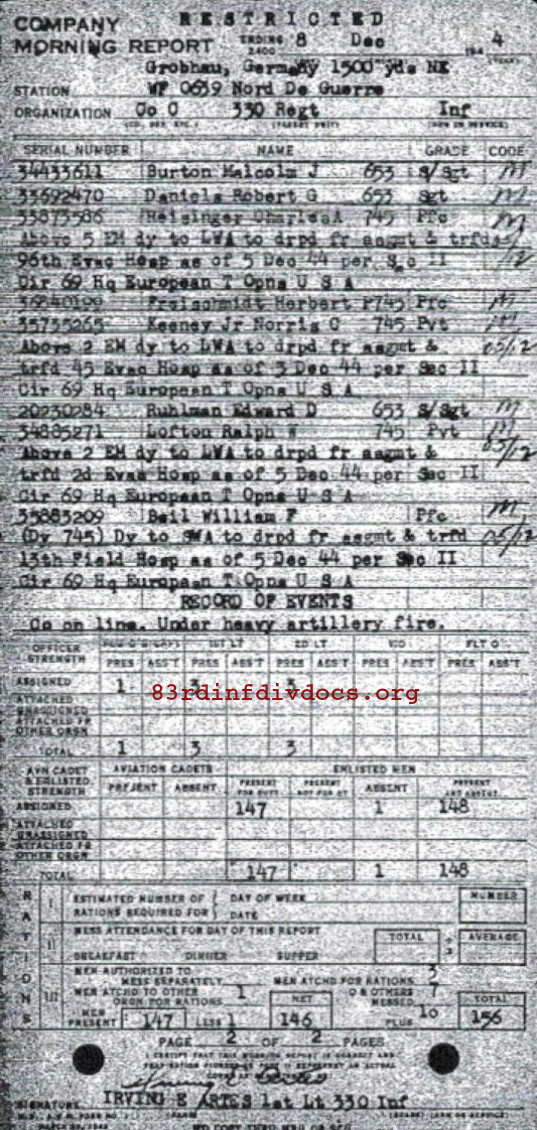 RESTRICTED
COMPANY
MORNING REPORT ENDING 2400 8 Dec 194 4
Grobhau, Germany 1500 yds NE
STATION WF 0639 Nord De Guerre
ORGANIZATION Co C 330 Regt Inf
SERIAL NUMBER NAME GRADE CODE
34433611 Burton Malcolm J 653 S/Sgt M
33692470 Daniels Robert G 653 Sgt M
33873586 Heisinger Charles A 745 Pfc M
Above 5 EM dy to LWA to drpd fr asgmt & trfd
96th Evac Hosp as of 5 Dec 44 per Sec II
Cir 69 Hq European T Opns U S A
Freischmidt Herbert F 745 Pfc M
35735265 Keeney Jr Norris C 745 Pvt M
Above 2 EM dy to LWA to drpd fr asgmt & 05/12
trfd 45 Evac Hosp as of 3 Dec 44 per Sec II
Cir 69 Hq European T Opns U S A
20230284 Ruhlman Edward D 653 S/Sgt M
34885271 Lofton Ralph W 745 Pvt M
Above 2 EM dy to LWA to drpd fr asgmt & 05/12
trfd 2d Evac Hosp as of 5 Dec 44 per Sec II
Cir 69 Hq European T Opns U S A
35883209 Beil William F Pfc M
(Dy 745) Dy to SWA to drpd fr asgmt & trfd 05/12
13th Field Hosp as of 5 Dec 44 per Sec II
Cir 69 Hq European T Opns U S A
RECORD OF EVENTS
Co on line. Under heavy artillery fire.
OFFICER STRENGTH 1ST LT 2D LT WO FLT O
PRES ABS'T PRES ABS'T PRES ABS'T PRES ABS'T PRES ABS'T
ASSIGNED 1 3 3
83rdinfdivdocs.org
ATTACHED UNASSIGNED
ATTACHED FR OTHER ORGN
TOTAL 1 3 3
AVN CADET & ENLISTED STRENGTH AVIATION CADETS ENLISTED MEN
PRESENT ABSENT PRESENT FOR DUTY PRESENT NOT FOR DY ABSENT PRESENT AND ABSENT
ASSIGNED 147 1 148
ATTACHED UNASSIGNED
ATTACHED FR OTHER ORGN
TOTAL 147 1 148
RATIONS
I ESTIMATED NUMBER OF DAY OF WEEK NUMBER
RATIONS REQUIRED FOR DATE
II MESS ATTENDANCE FOR DAY OF THIS REPORT TOTAL ÷ 3 AVERAGE
BREAKFAST DINNER SUPPER
III MEN AUTHORIZED TO MESS SEPARATELY MEN ATCHD FOR RATIONS 3
MEN ATCHD TO OTHER ORGN FOR RATIONS 1 NET O & OTHERS MESSED 7 TOTAL
MEN PRESENT 147 LESS 1 146 PLUS 10 156
PAGE 2 OF 2 PAGES
I CERTIFY THAT THIS MORNING REPORT IS CORRECT AND
SIGNATURE IRVING E ARTES 1st Lt 330 Inf